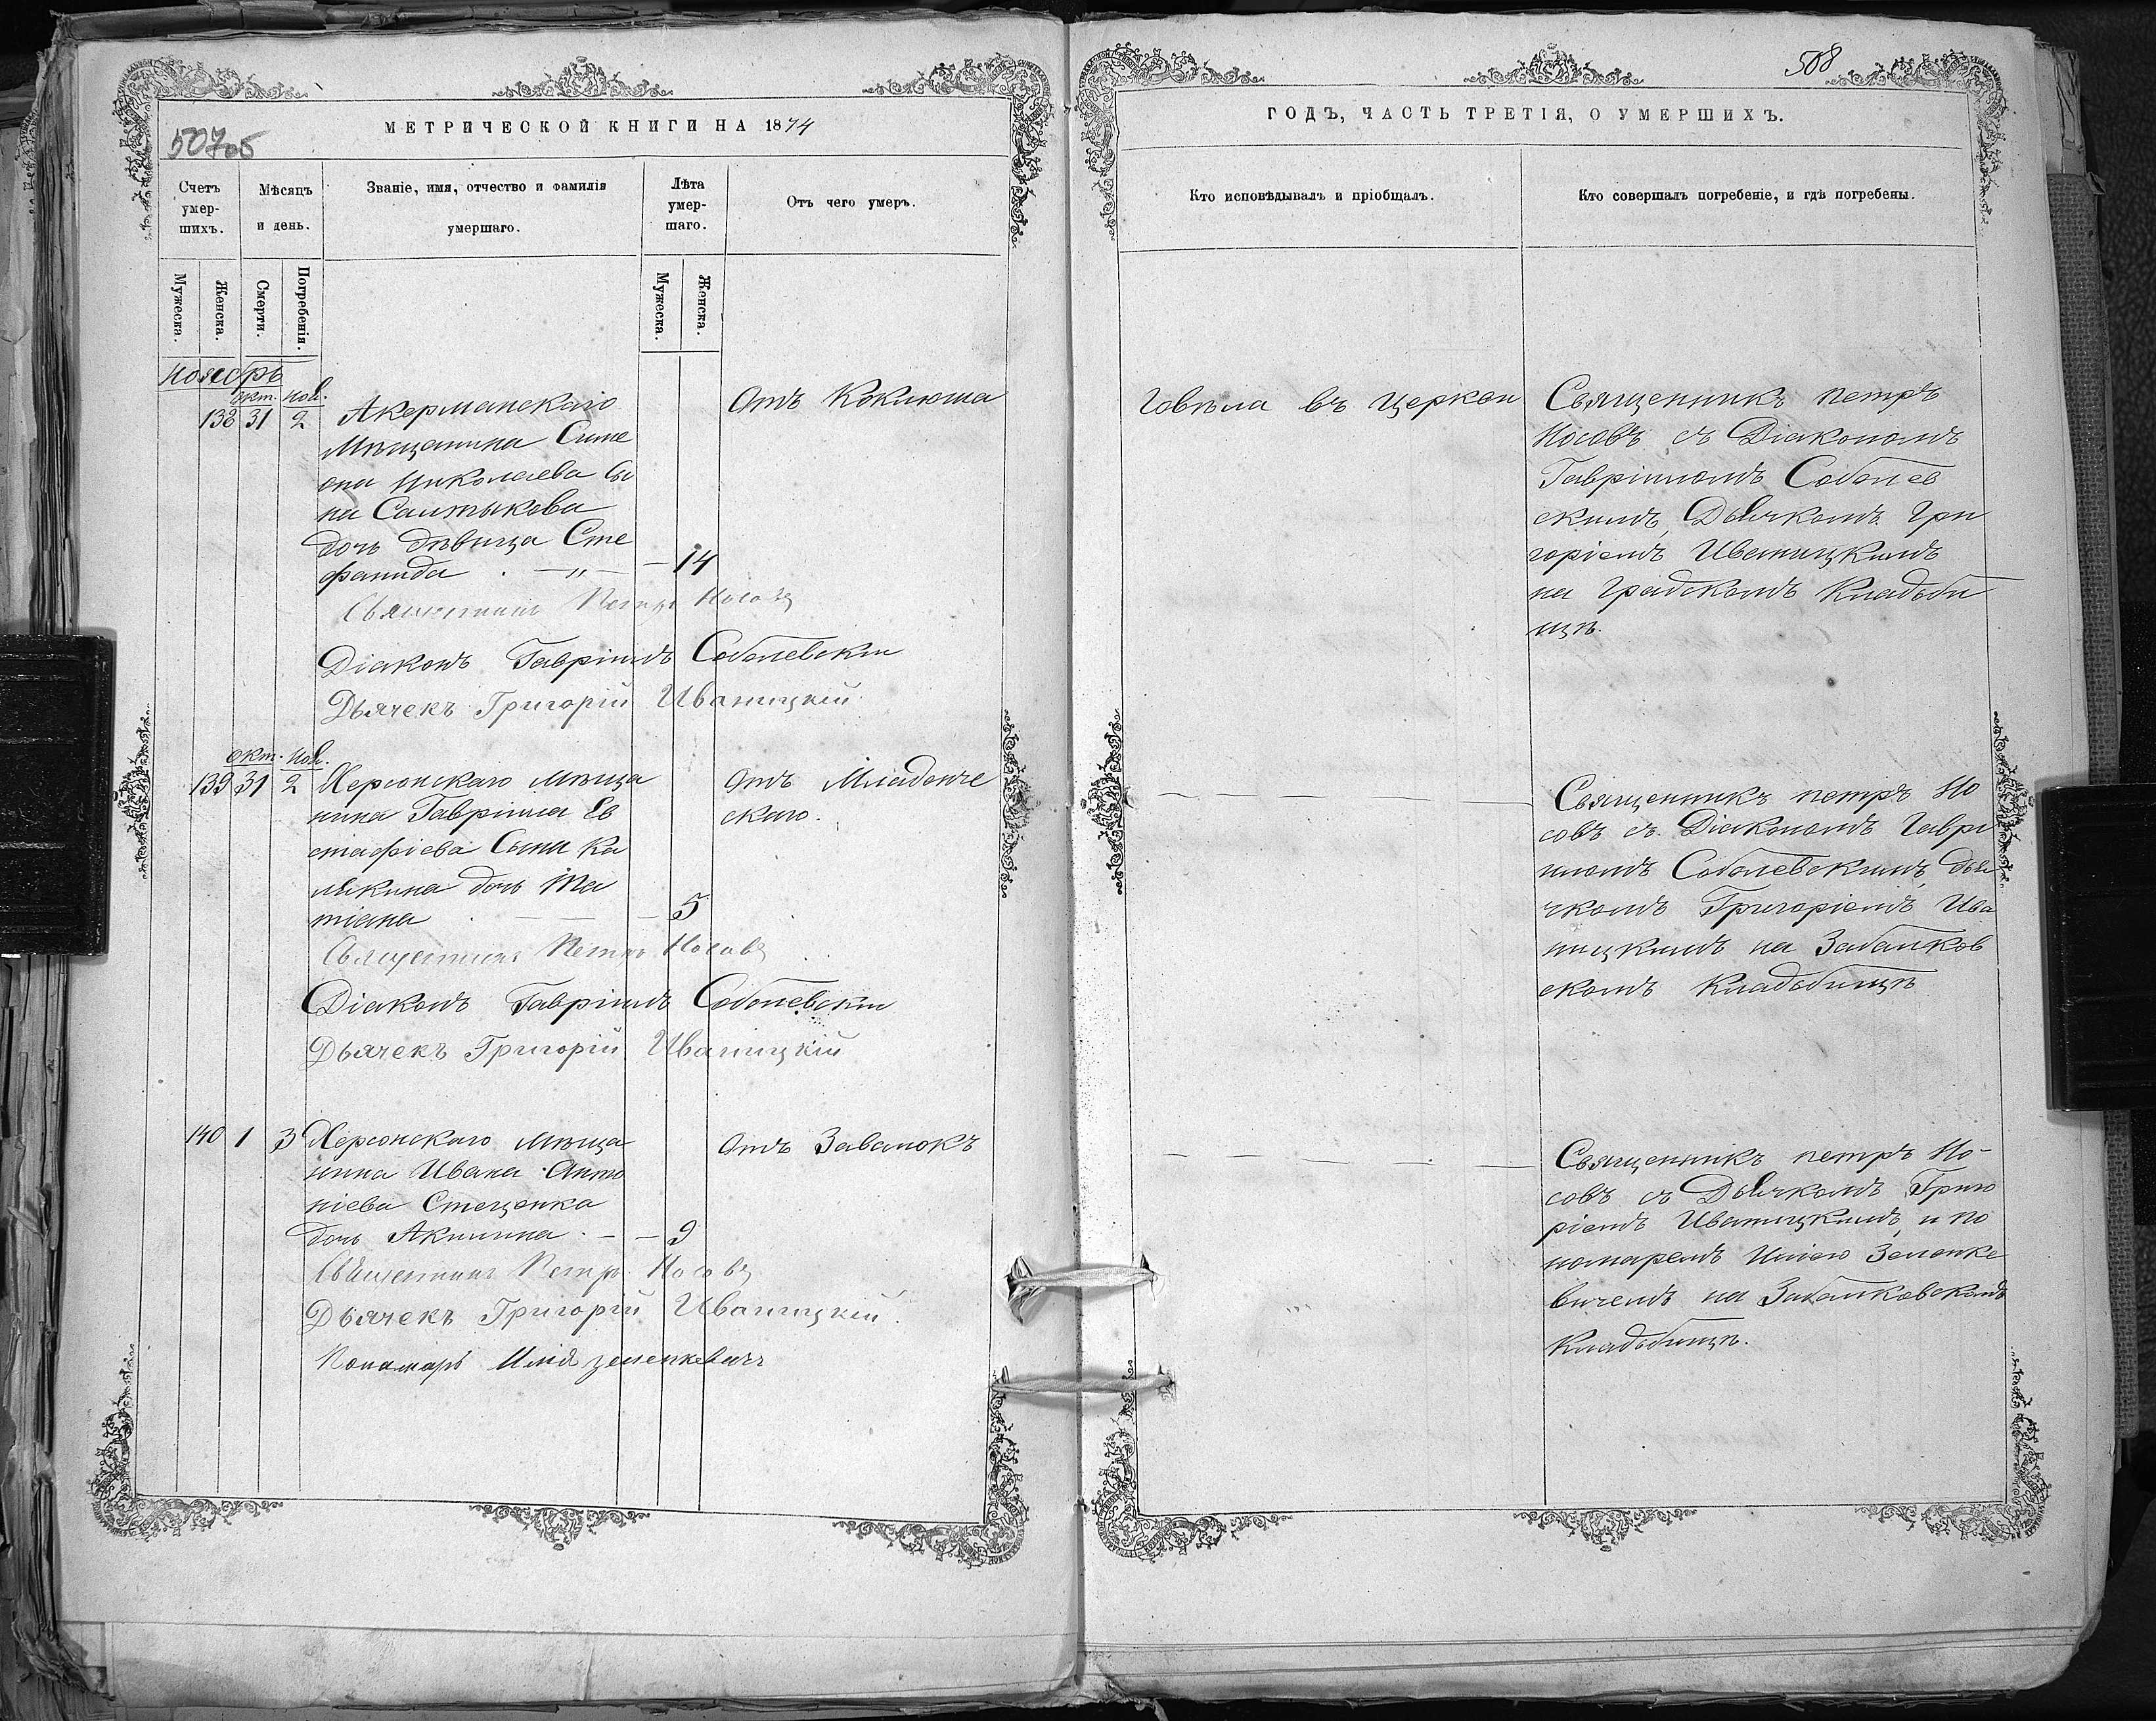 507об
МЕТРИЧЕСКОЙ КНИГИ НА 1874
Счетъ умер-шихъ.
Мѣсяцъ и день.
Званіе, имя, отчество и фамилія умершаго.
Лѣта умер-шаго.
Отъ чего умеръ.
Мужеска.
Женска.
Смерти.
Погребенія.
Мужеска.
Женска.
Ноябрь
окт. нов.
138 31 2 Акерманскаго Отъ Коклюша
Мѣщанина Симе
она Николаева Сы
на Салтыкова
дочь дѣвица Сте
фанида - „ - - 14
Священникъ Петръ Носовъ
Діаконъ Гавріилъ Соболевскій
Дьячекъ Григорій Иваницкій
окт. нов.
139 31 2 Херсонскаго мѣща Отъ Младенче
нина Гавріила Ев скаго.
стафіева Сына Ка
лякина дочь Та
тіана - - - 5
Священникъ Петръ Носовъ
Діаконъ Гавріилъ Соболевскій
Дьячекъ Григорій Иваницкій
140 1 3 Херсонскаго мѣща Отъ Завалокъ
нина Ивана Анто
ніева Стеценка
дочь Акилина - - 9
Священникъ Петръ Носовъ
Дьячекъ Григорій Иваницкій.
Пономарь Илія Зеленкевичъ
508
ГОДЪ, ЧАСТЬ ТРЕТІЯ, О УМЕРШИХЪ.
Кто исповѣдывалъ и пріобщалъ.
Кто совершалъ погребеніе, и гдѣ погребены.
Говѣла въ Церкви Священникъ Петръ
Носовъ съ Діакономъ
Гавріиломъ Соболев
скимъ, Дьячкомъ Гри
горіемъ Иваницкимъ
на Градскомъ Кладби
щѣ.
Священникъ Петръ Но
совъ съ Діакономъ Гаврі
иломъ Соболевскимъ, дья
чкомъ Григоріемъ Ива
ницкимъ на Забалков
скомъ Кладбищѣ
Священникъ Петръ Но-
совъ съ Дьячкомъ Григо
ріемъ Иваницкимъ и по
номаремъ Иліею Зеленке
вичемъ на Забалковскомъ
Кладбищѣ.